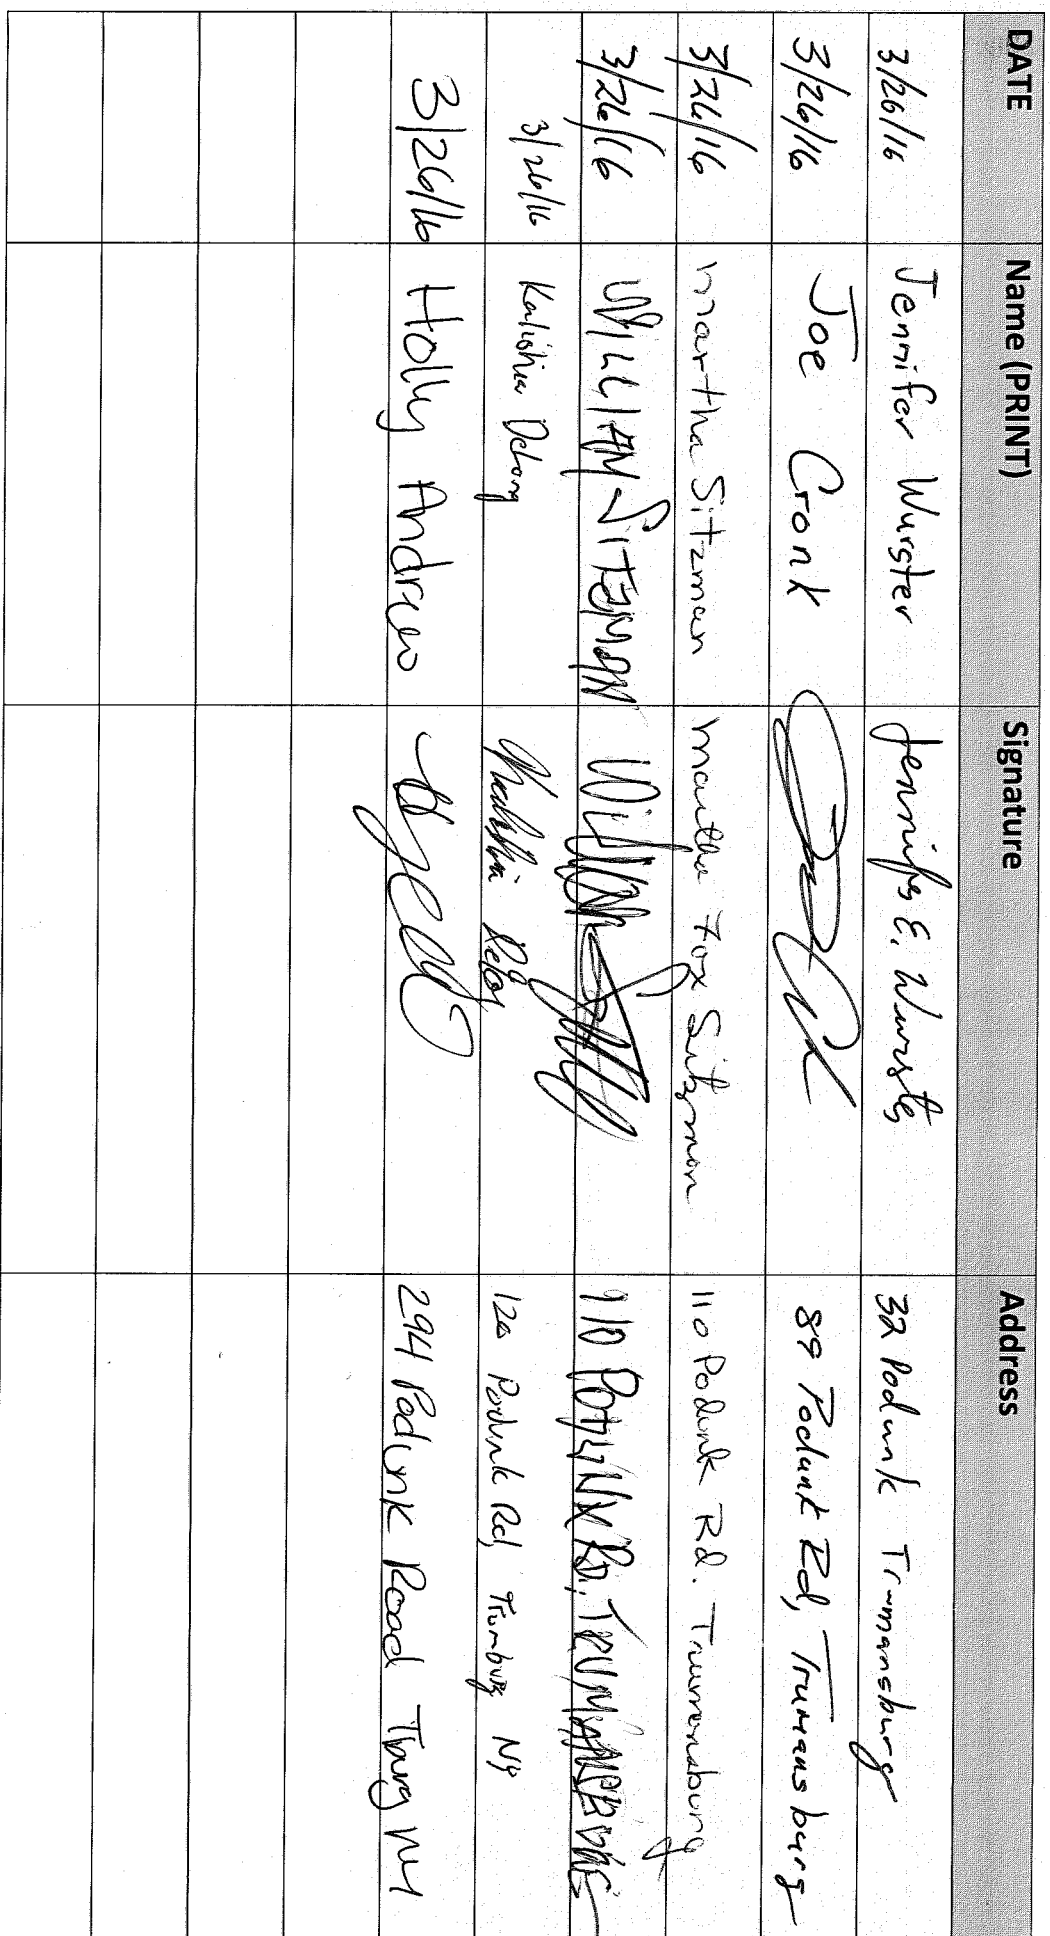 DATE Name (PRINT) Signature Address
3/26/16 Jennifer Wurster Jennifer E. Wurster 32 Podunk Trumansburg
3/26/16 Joe Cronk 89 Podunk Rd, Trumansburg
3/26/16 Martha Sitzman Martha Fox Sitzman 110 Podunk Rd. Trumansburg
3/26/16 WILLIAM SITZMAN William 110 PODUNK RD, TRUMANSBURG
3/26/16 Delong 120 Podunk Rd Trumburg NY
3/26/16 Holly Andrew 294 Podunk Road Tburg NY